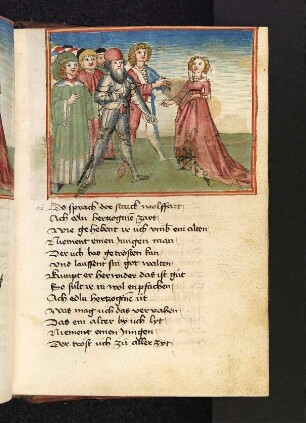 Do sprach der starck wolffart
Ach edlu hertzogine zart
Wie gehebent ir uch umb ein alten
Niement einen jungen man
Der uch bas getrosten kan
Und laussent sin got walten
Kumpt er herwider das ist gůt
So sult ir in wol enpfachen
Ach edlu hertzogine
Was mag uch das
Das ein alter by uch lyt
Niement einen jungen
Der trost uch zů aller zyt